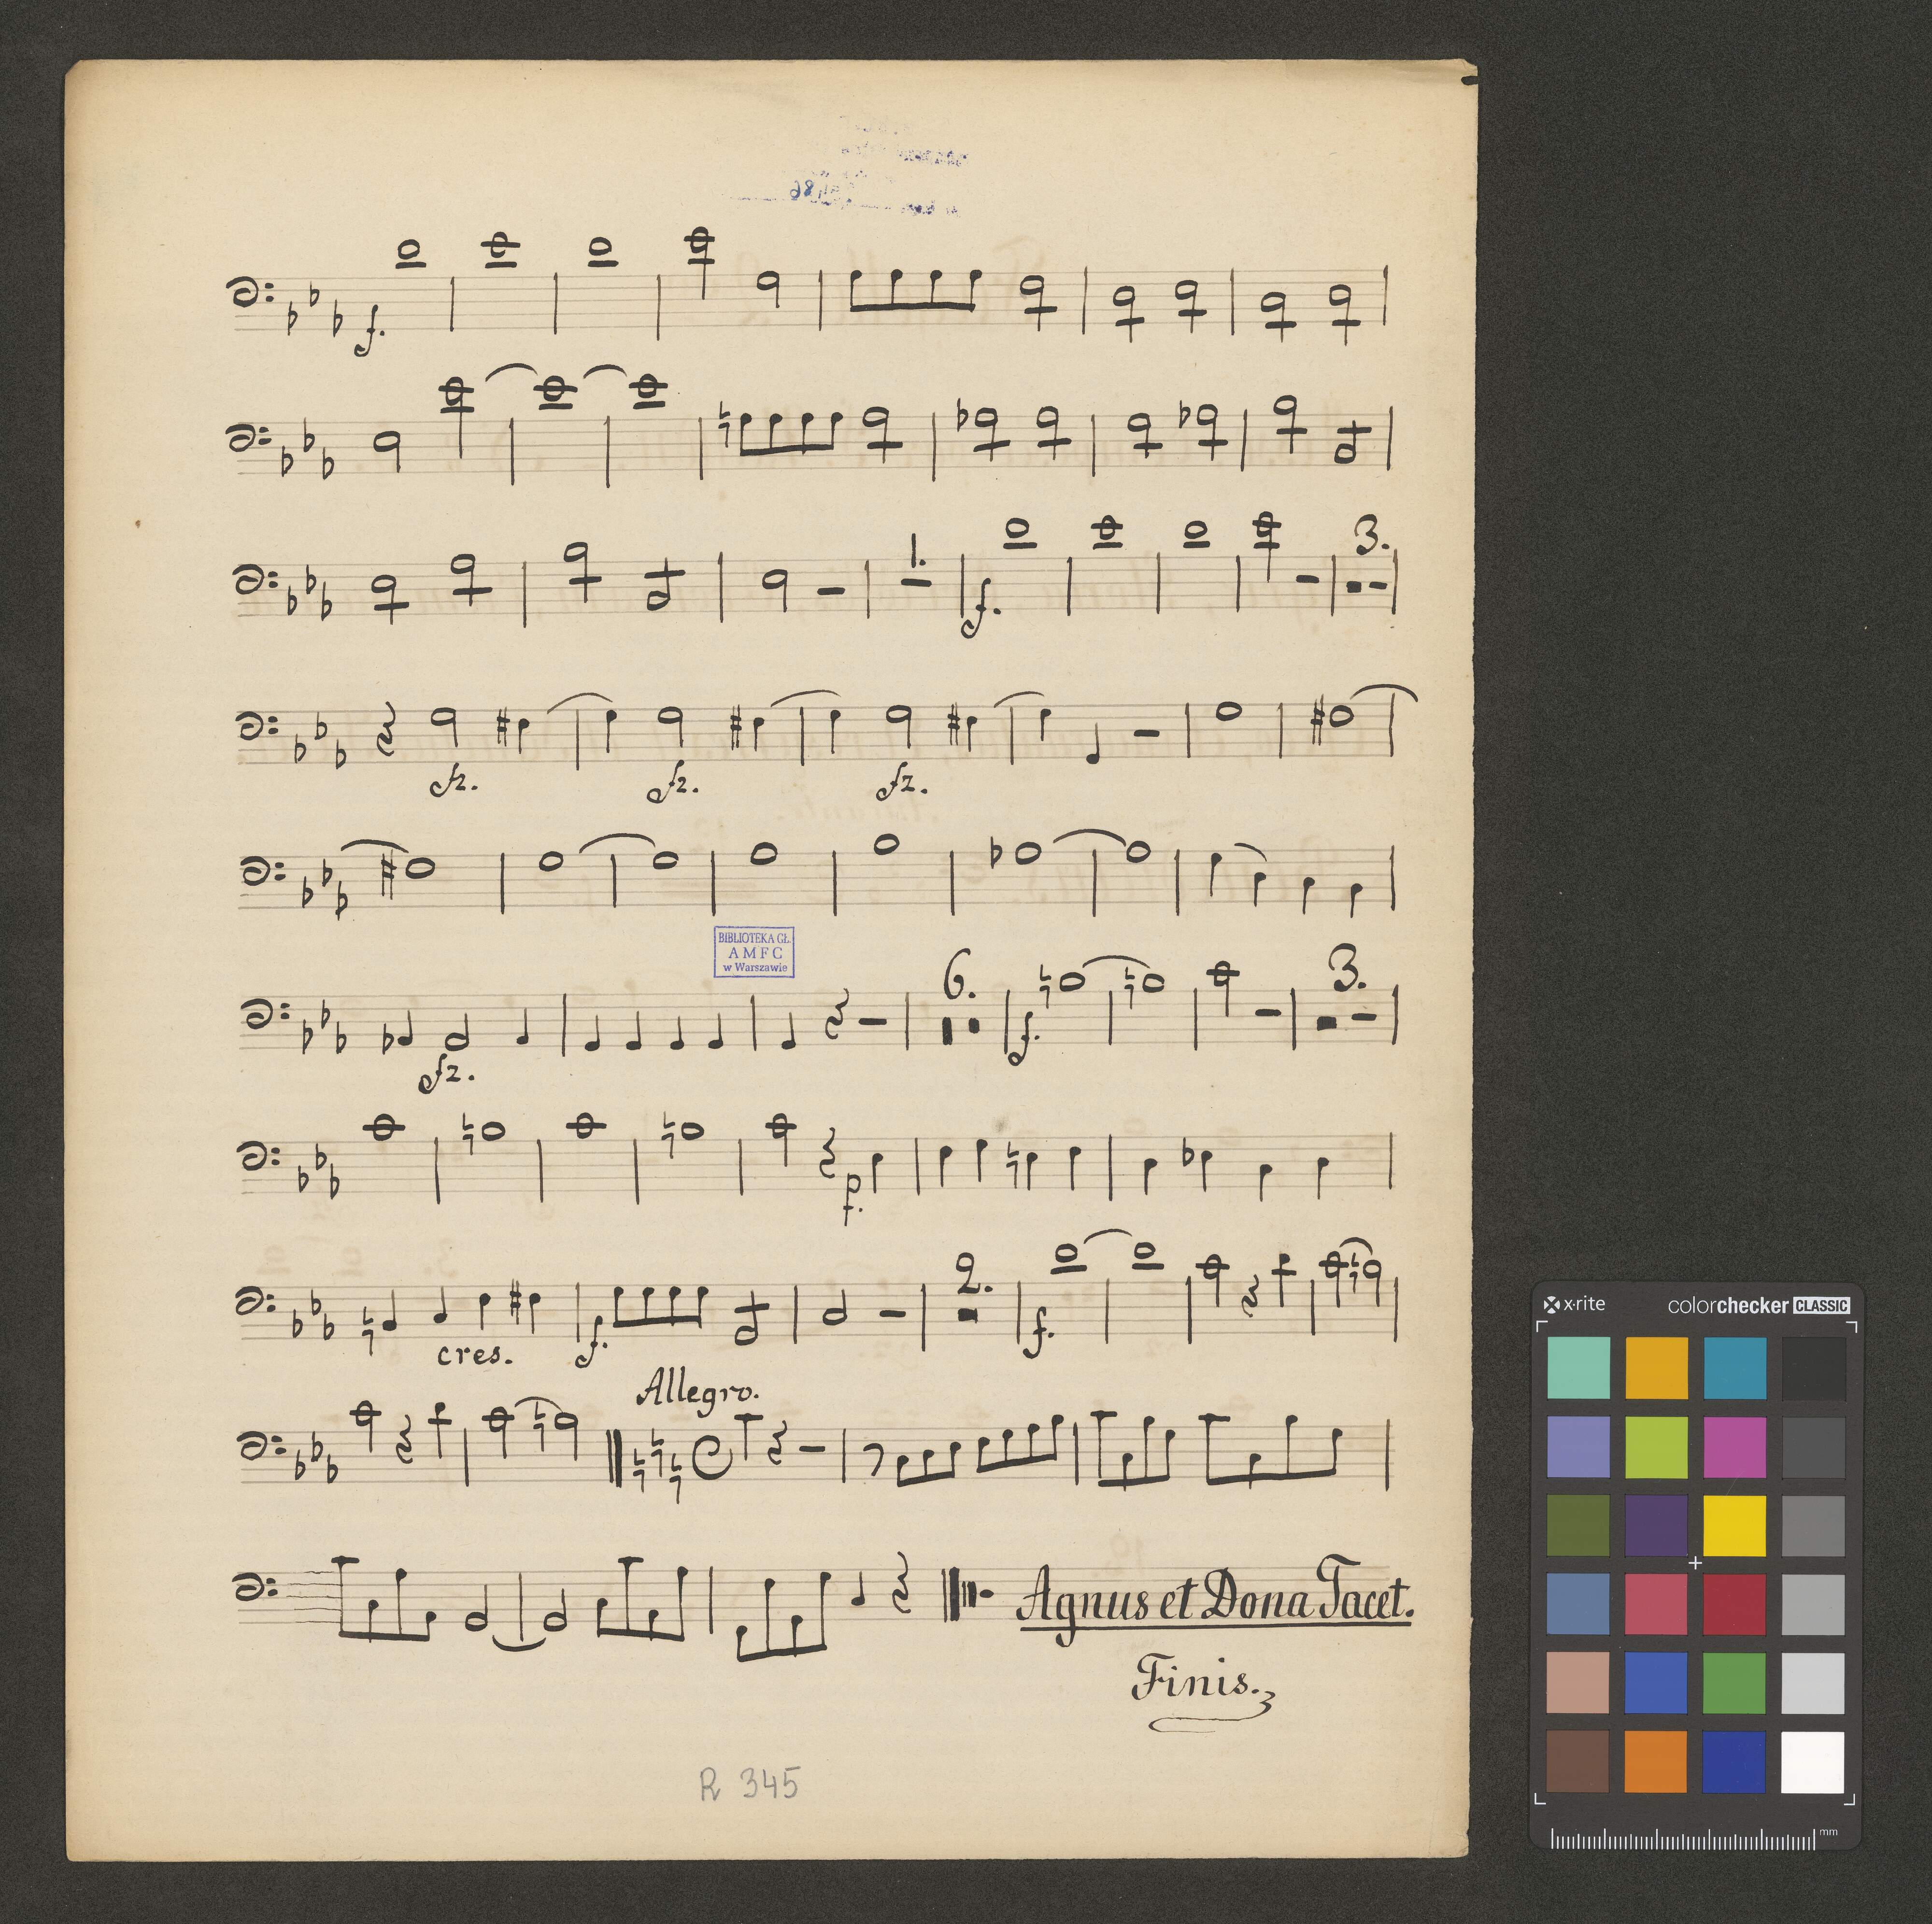 86
f.
1.
3.
f.
fz. fz. fz.
BIBLIOTEKA GŁ.
AMFC
w Warszawie
6.
3.
f.
fz.
p.
2.
f. f.
cres.
Allegro.
Agnus et Dona Tacet.
Finis.
R 345
x·rite colorchecker CLASSIC
mm